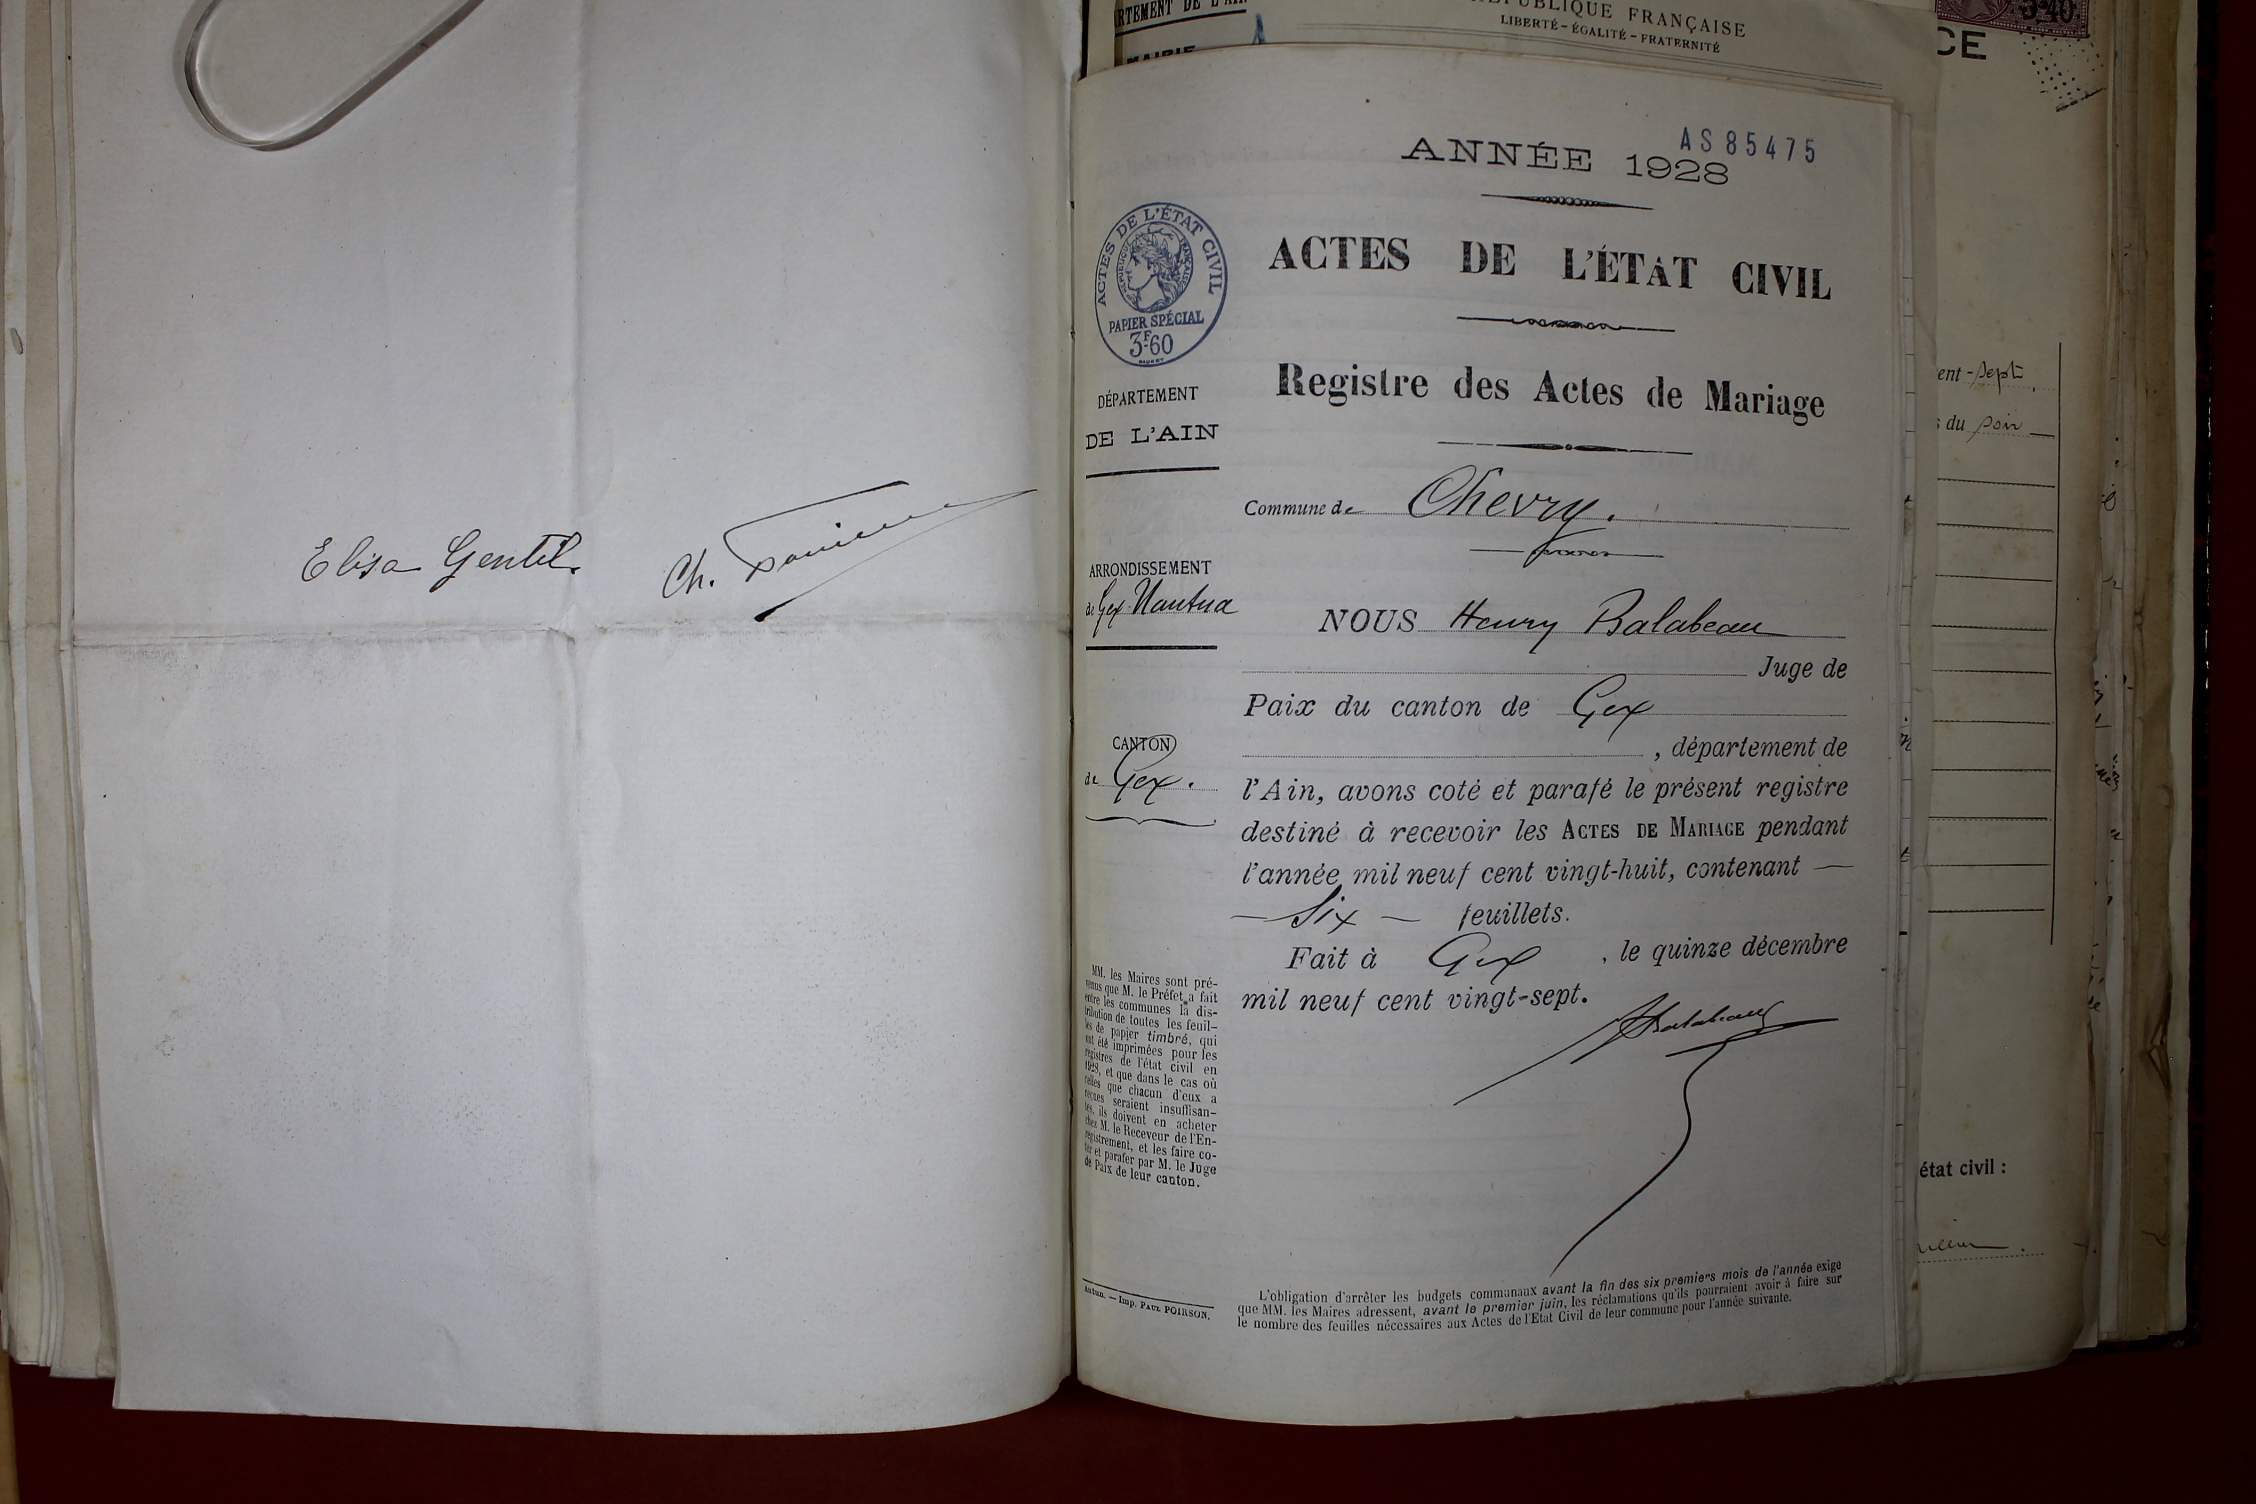 Elisa Gentil.
Ch.
RTEMENT DE L'AIN
MAIRIE
RÉPUBLIQUE FRANÇAISE
LIBERTÉ - ÉGALITÉ - FRATERNITÉ
3F40
CE
ent-sept
du soir
état civil :
AS85475
ANNÉE 1928
ACTES DE L'ÉTAT CIVIL
RÉPUBLIQUE FRANÇAISE
PAPIER SPÉCIAL
3F60
ACTES DE L'ÉTAT CIVIL
Registre des Actes de Mariage
DÉPARTEMENT
DE L'AIN
Commune de Chevry.
ARRONDISSEMENT
de Gex-Nantua
NOUS Henry Balabeau
Juge de
Paix du canton de Gex
CANTON
de Gex.
, département de
l'Ain, avons coté et parafé le présent registre
destiné à recevoir les ACTES DE MARIAGE pendant
l'année mil neuf cent vingt-huit, contenant —
— Six — feuillets.
Fait à Gex , le quinze décembre
mil neuf cent vingt-sept.
Balabeau
MM. les Maires sont pré-
venus que M. le Préfet a fait
entre les communes la dis-
tribution de toutes les feuil-
les de papier timbré, qui
ont été imprimées pour les
registres de l'état civil en
1928, et que dans le cas où
celles que chacun d'eux a
reçues seraient insuffisan-
tes, ils doivent en acheter
chez M. le Receveur de l'En-
registrement, et les faire co-
ter et parafer par M. le Juge
de Paix de leur canton.
Autun. — Imp. PAUL POIRSON.
L'obligation d'arrêter les budgets communaux avant la fin des six premiers mois de l'année exige
que MM. les Maires adressent, avant le premier juin, les réclamations qu'ils pourraient avoir à faire sur
le nombre des feuilles nécessaires aux Actes de l'Etat Civil de leur commune pour l'année suivante.